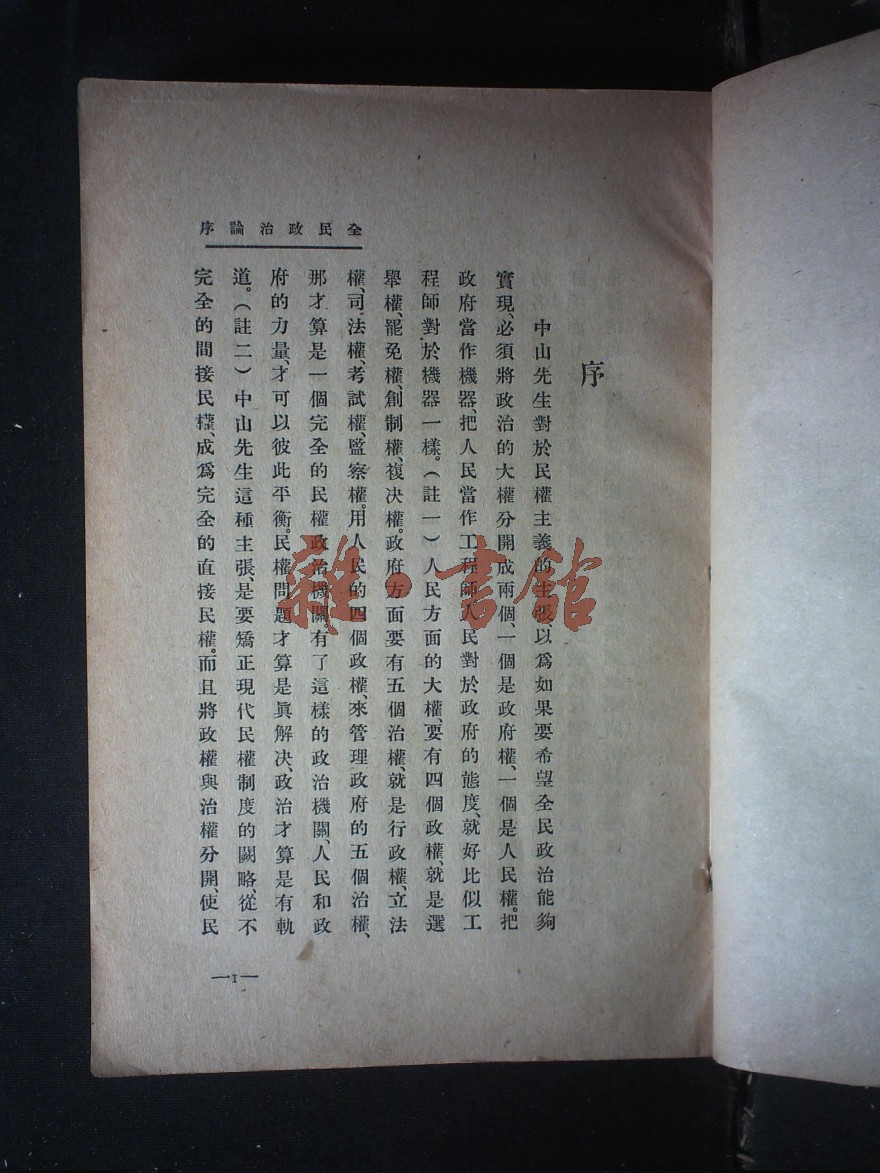 全民政治論序
序
中山先生對於民權主義的主張、以爲如果要希望全民政治能夠
實現、必須將政治的大權分開成兩個、一個是政府權、一個是人民權。把
政府當作機器、把人民當作工程師、人民對於政府的態度、就好比似工
程師對於機器一樣。(註一)人民方面的大權、要有四個政權、就是選
舉權、罷免權、創制權、複决權。政府方面要有五個治權、就是行政權、立法
權、司法權、考試權、監察權。用人民的四個政權、來管理政府的五個治權、
那才算是一個完全的民權政治機關。有了這樣的政治機關、人民和政
府的力量、才可以彼此平衡。民權問題才算是眞解决、政治才算是有軌
道。(註二)中山先生這種主張、是要矯正現代民權制度的闕略、從不
完全的間接民權、成爲完全的直接民權。而且將政權與治權分開、使民
—1—
雜·書館